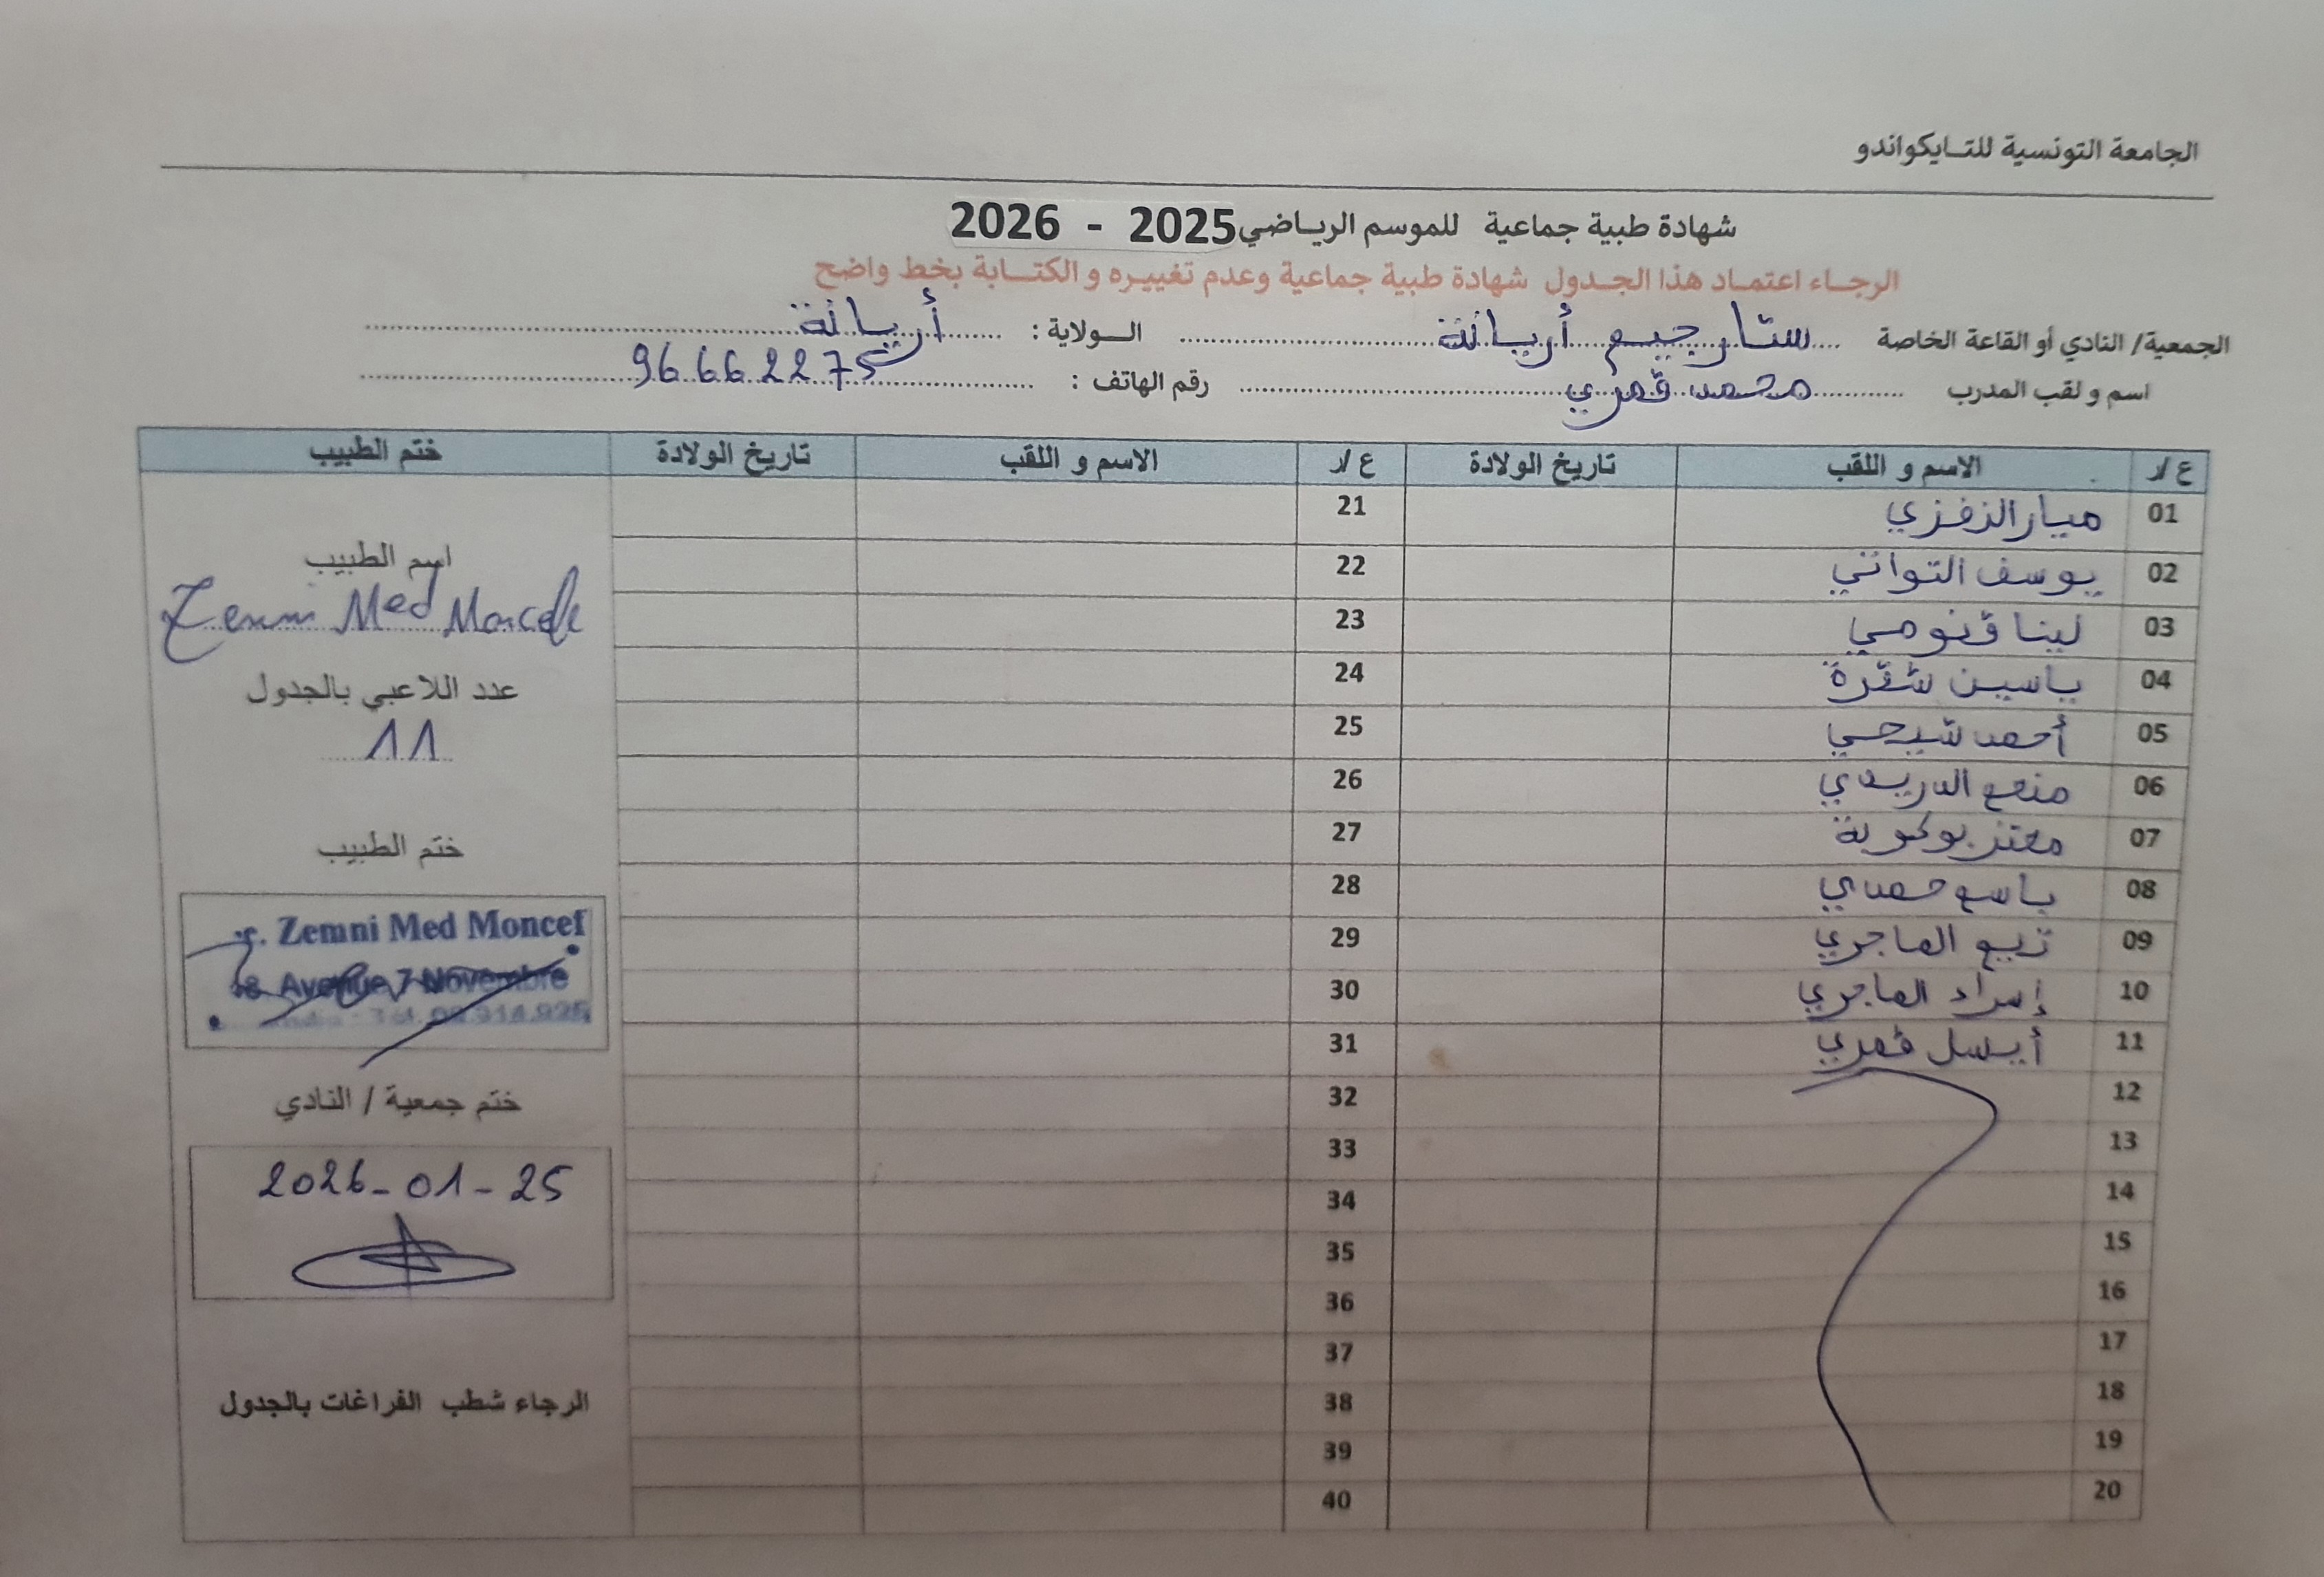 الجامعة التونسية للتــايكواندو
شهادة طبية جماعية للموسم الرياضي 2025 - 2026
الرجــاء اعتمــاد هذا الجــدول شهادة طبية جماعية وعدم تغييـره و الكتــابة بخط واضح
الجمعية/ النادي أو القاعة الخاصة ستار جيم أريانة الــولاية : أريانة
اسم و لقب المدرب محمد قمري رقم الهاتف : 96 662 275
ع/ر الاسم و اللقب تاريخ الولادة ع/ر الاسم و اللقب تاريخ الولادة ختم الطبيب
01 ميار الزفزي 21
02 يوسف التواتي 22
03 لينا قنومي 23
04 ياسين شقرة 24
05 أحمد شيحي 25
06 منعم الدريدي 26
07 معتز بوكوبة 27
08 حمدي 28
09 الهاجري 29
10 إسراء الهاجري 30
11 أيسل قمري 31
12 32
13 33
14 34
15 35
16 36
17 37
18 38
19 39
20 40
اسم الطبيب
Zemni Med Moncef
عدد اللاعبي بالجدول
11
ختم الطبيب
r. Zemni Med Moncef
8 Avenue 7 Novembre
ختم جمعية / النادي
2026-01-25
الرجاء شطب الفراغات بالجدول